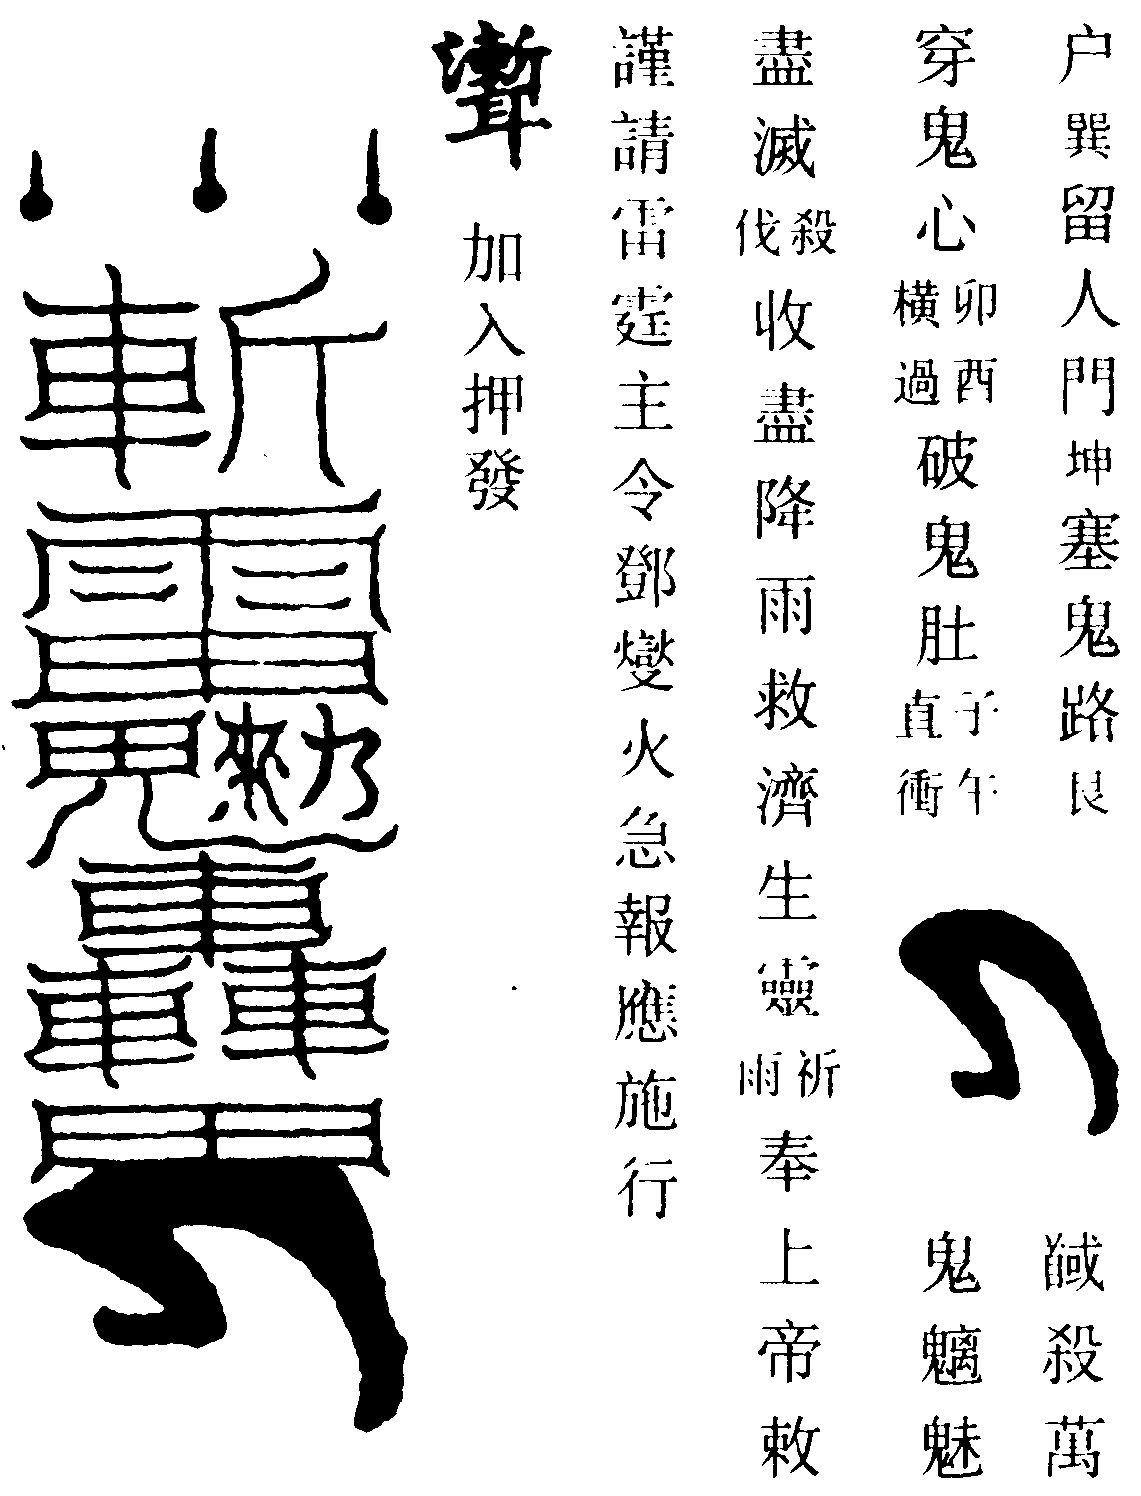 户巽留人門坤塞鬼路艮
穿鬼心卯酉橫過破鬼肚子午直衝
馘殺萬
鬼魑魅
盡滅殺伐收盡降雨救濟生靈祈雨奉上帝敕
謹請雷霆主令鄧燮火急報應施行
加入押發